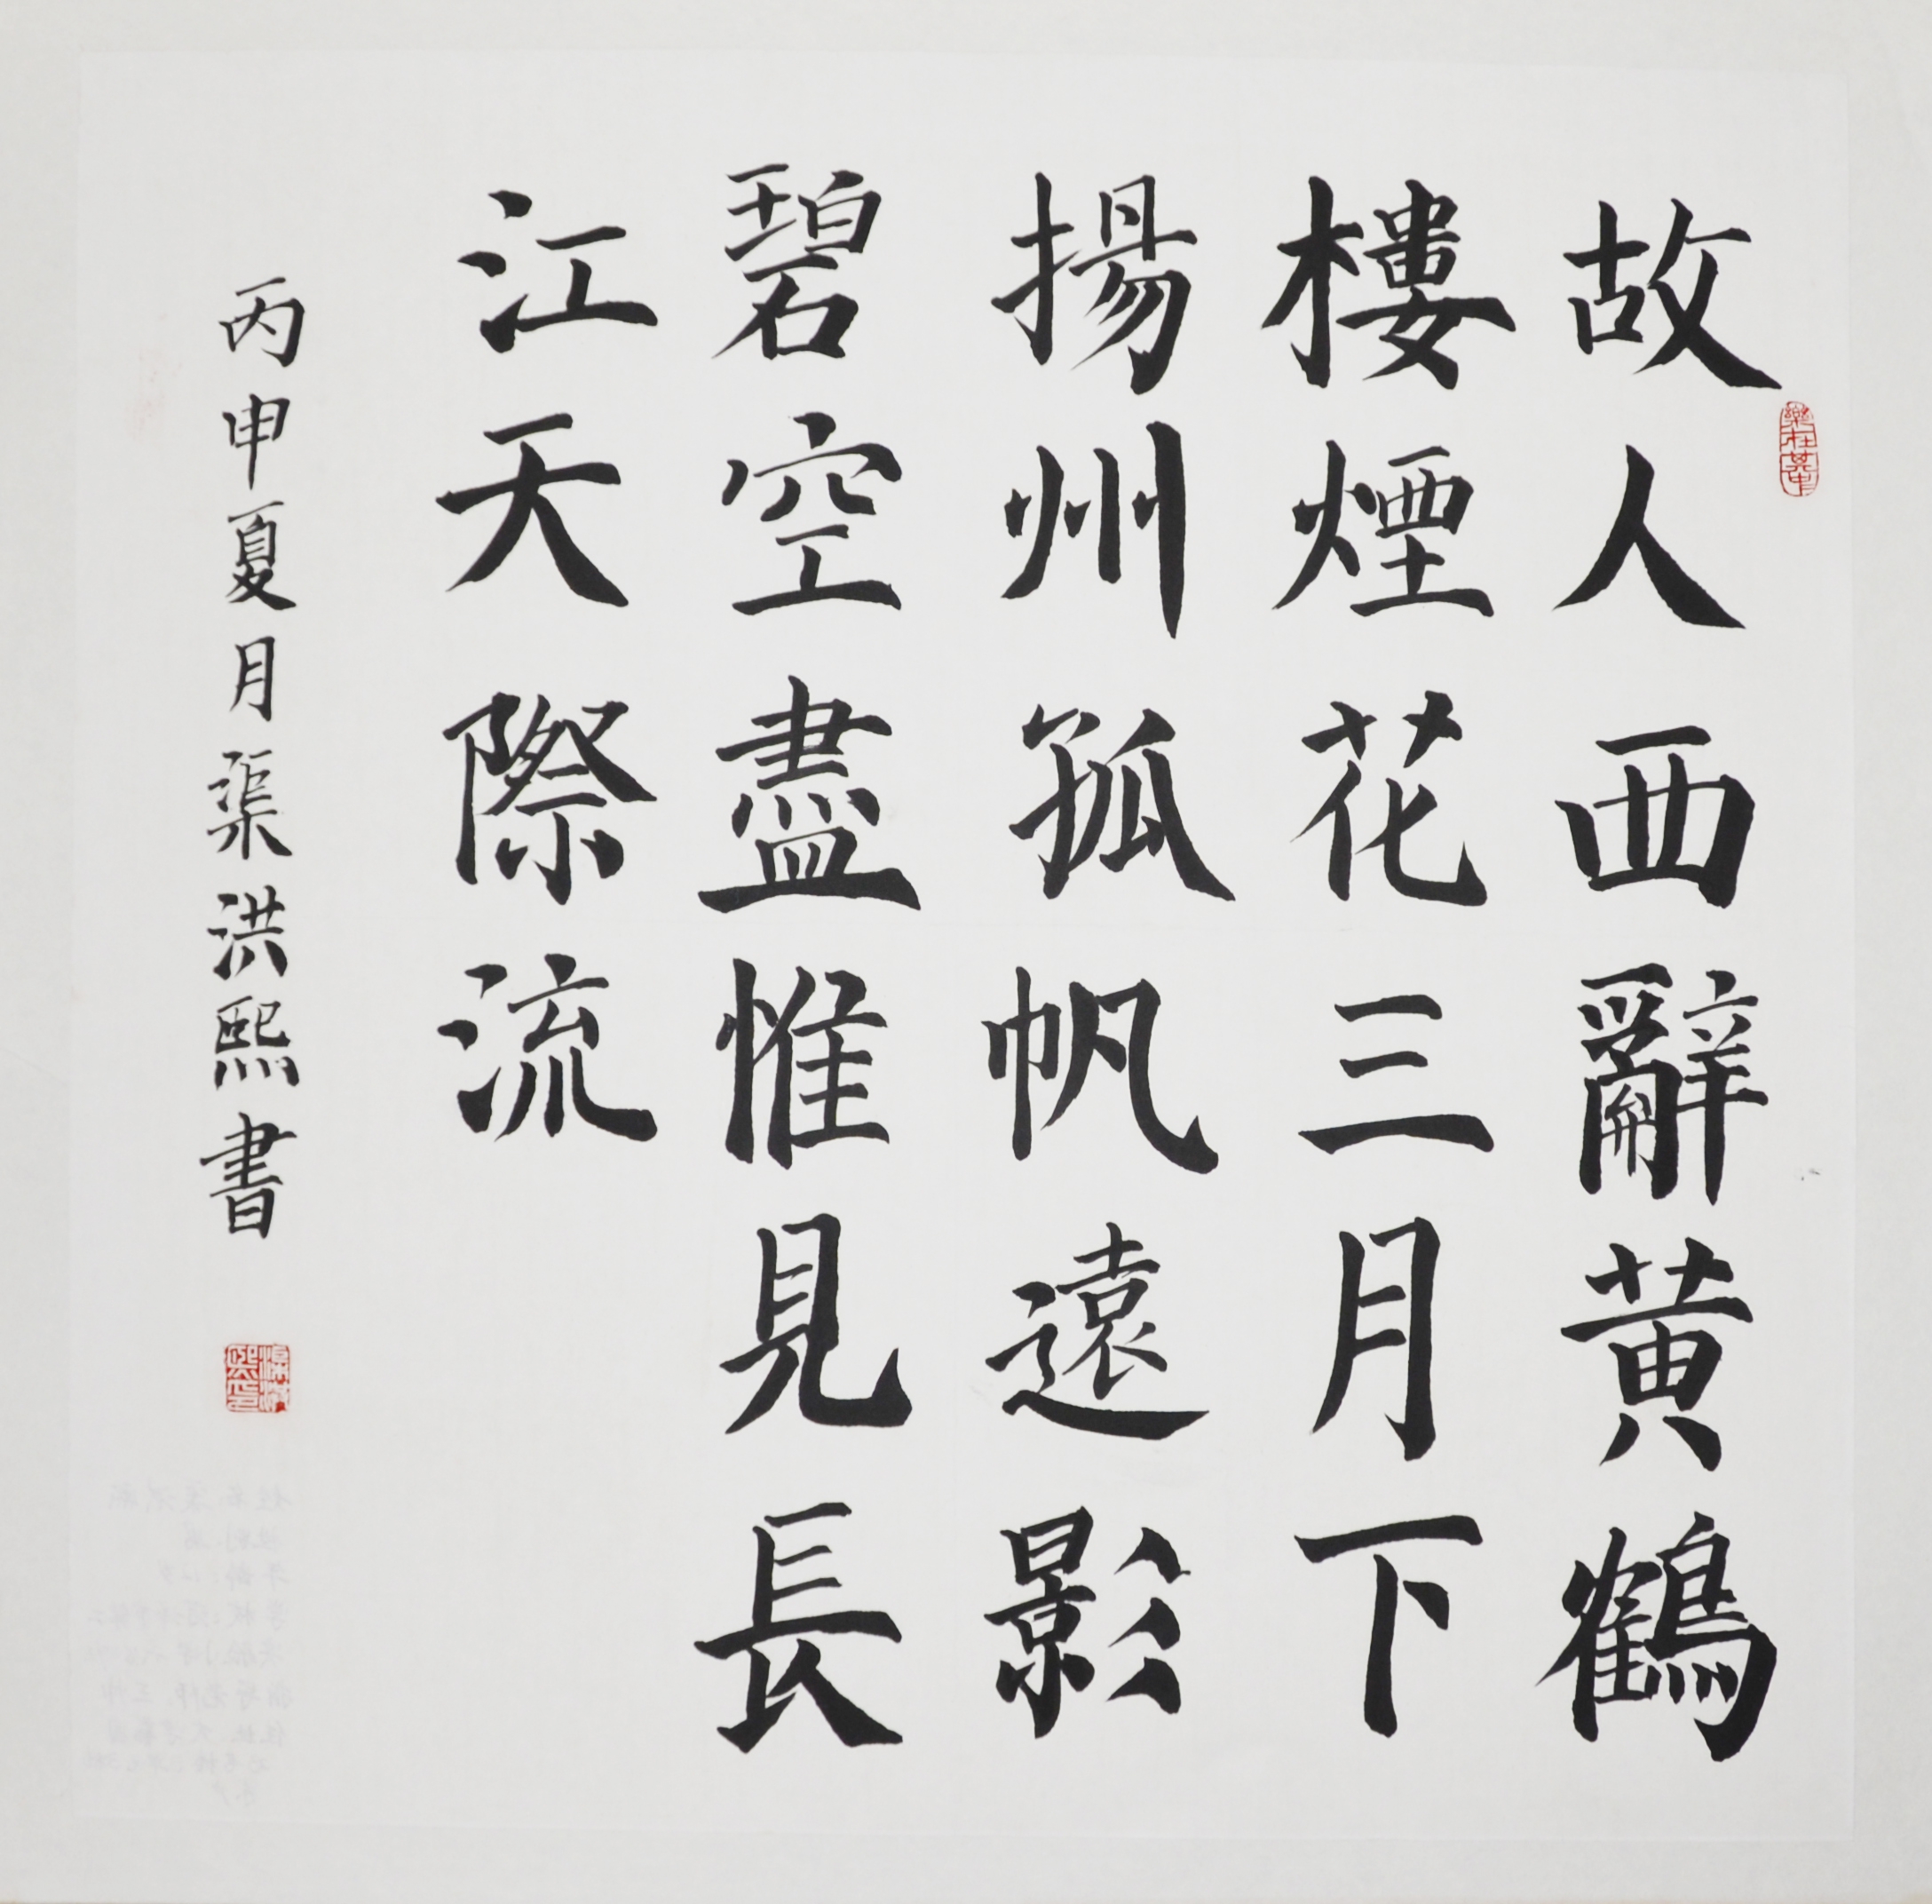 故人西辭黄鶴
樓煙花三月下
揚州孤帆遠影
碧空盡惟見長
江天際流
丙申夏月渠洪熙書
樂在其中